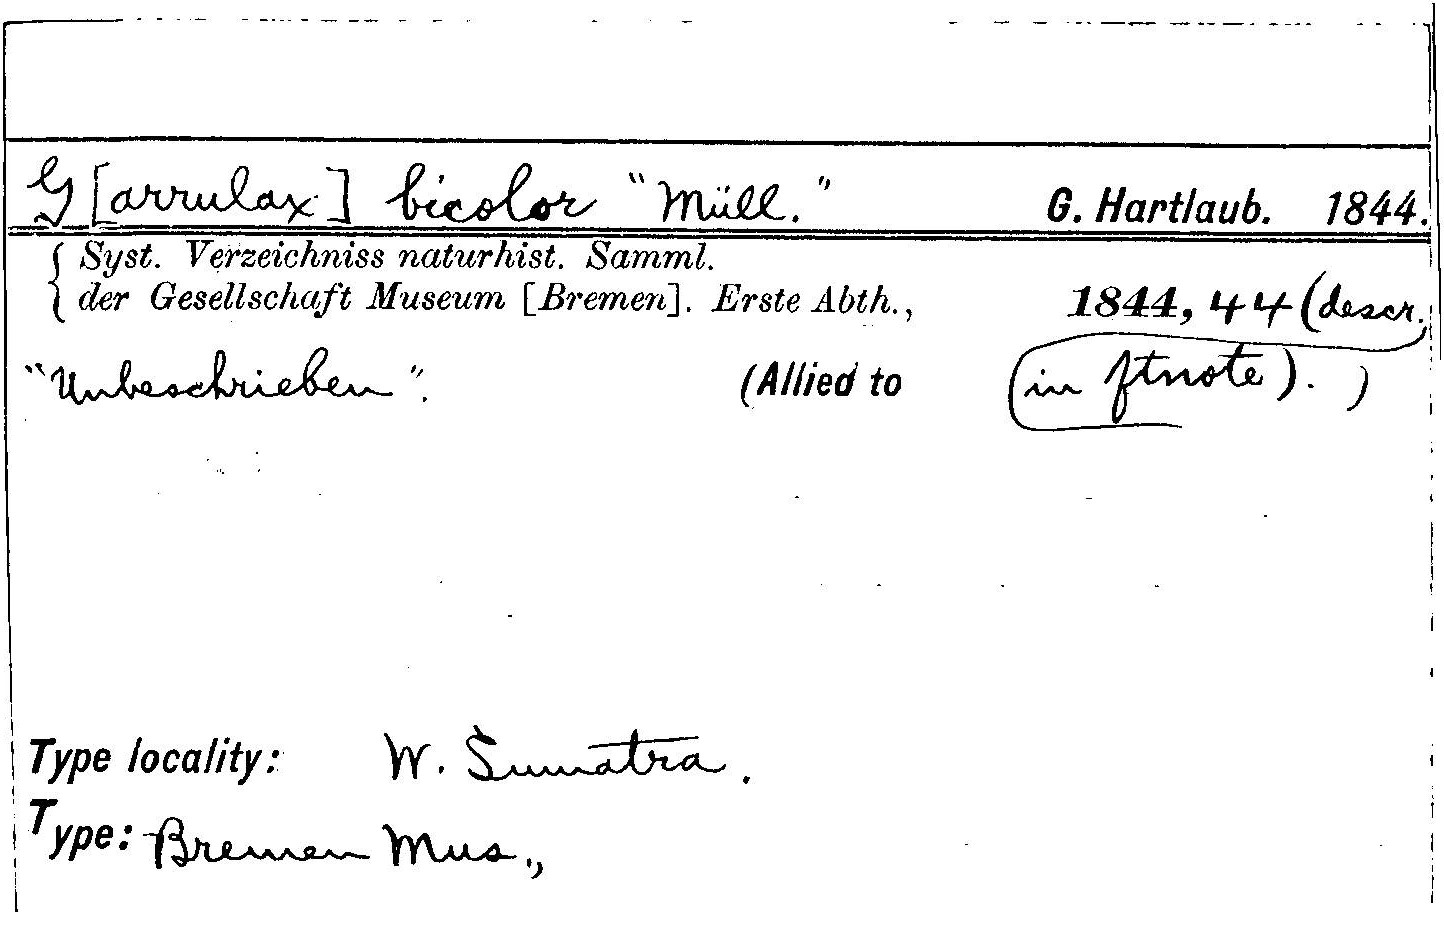 G[arrulax] bicolor "Müll." G. Hartlaub. 1844.
Syst. Verzeichniss naturhist. Samml.
der Gesellschaft Museum [Bremen]. Erste Abth., 1844, 44 (descr.
in ftnote).
"Unbeschrieben". (Allied to )
Type locality: W. Sumatra.
Type: Bremen Mus.,